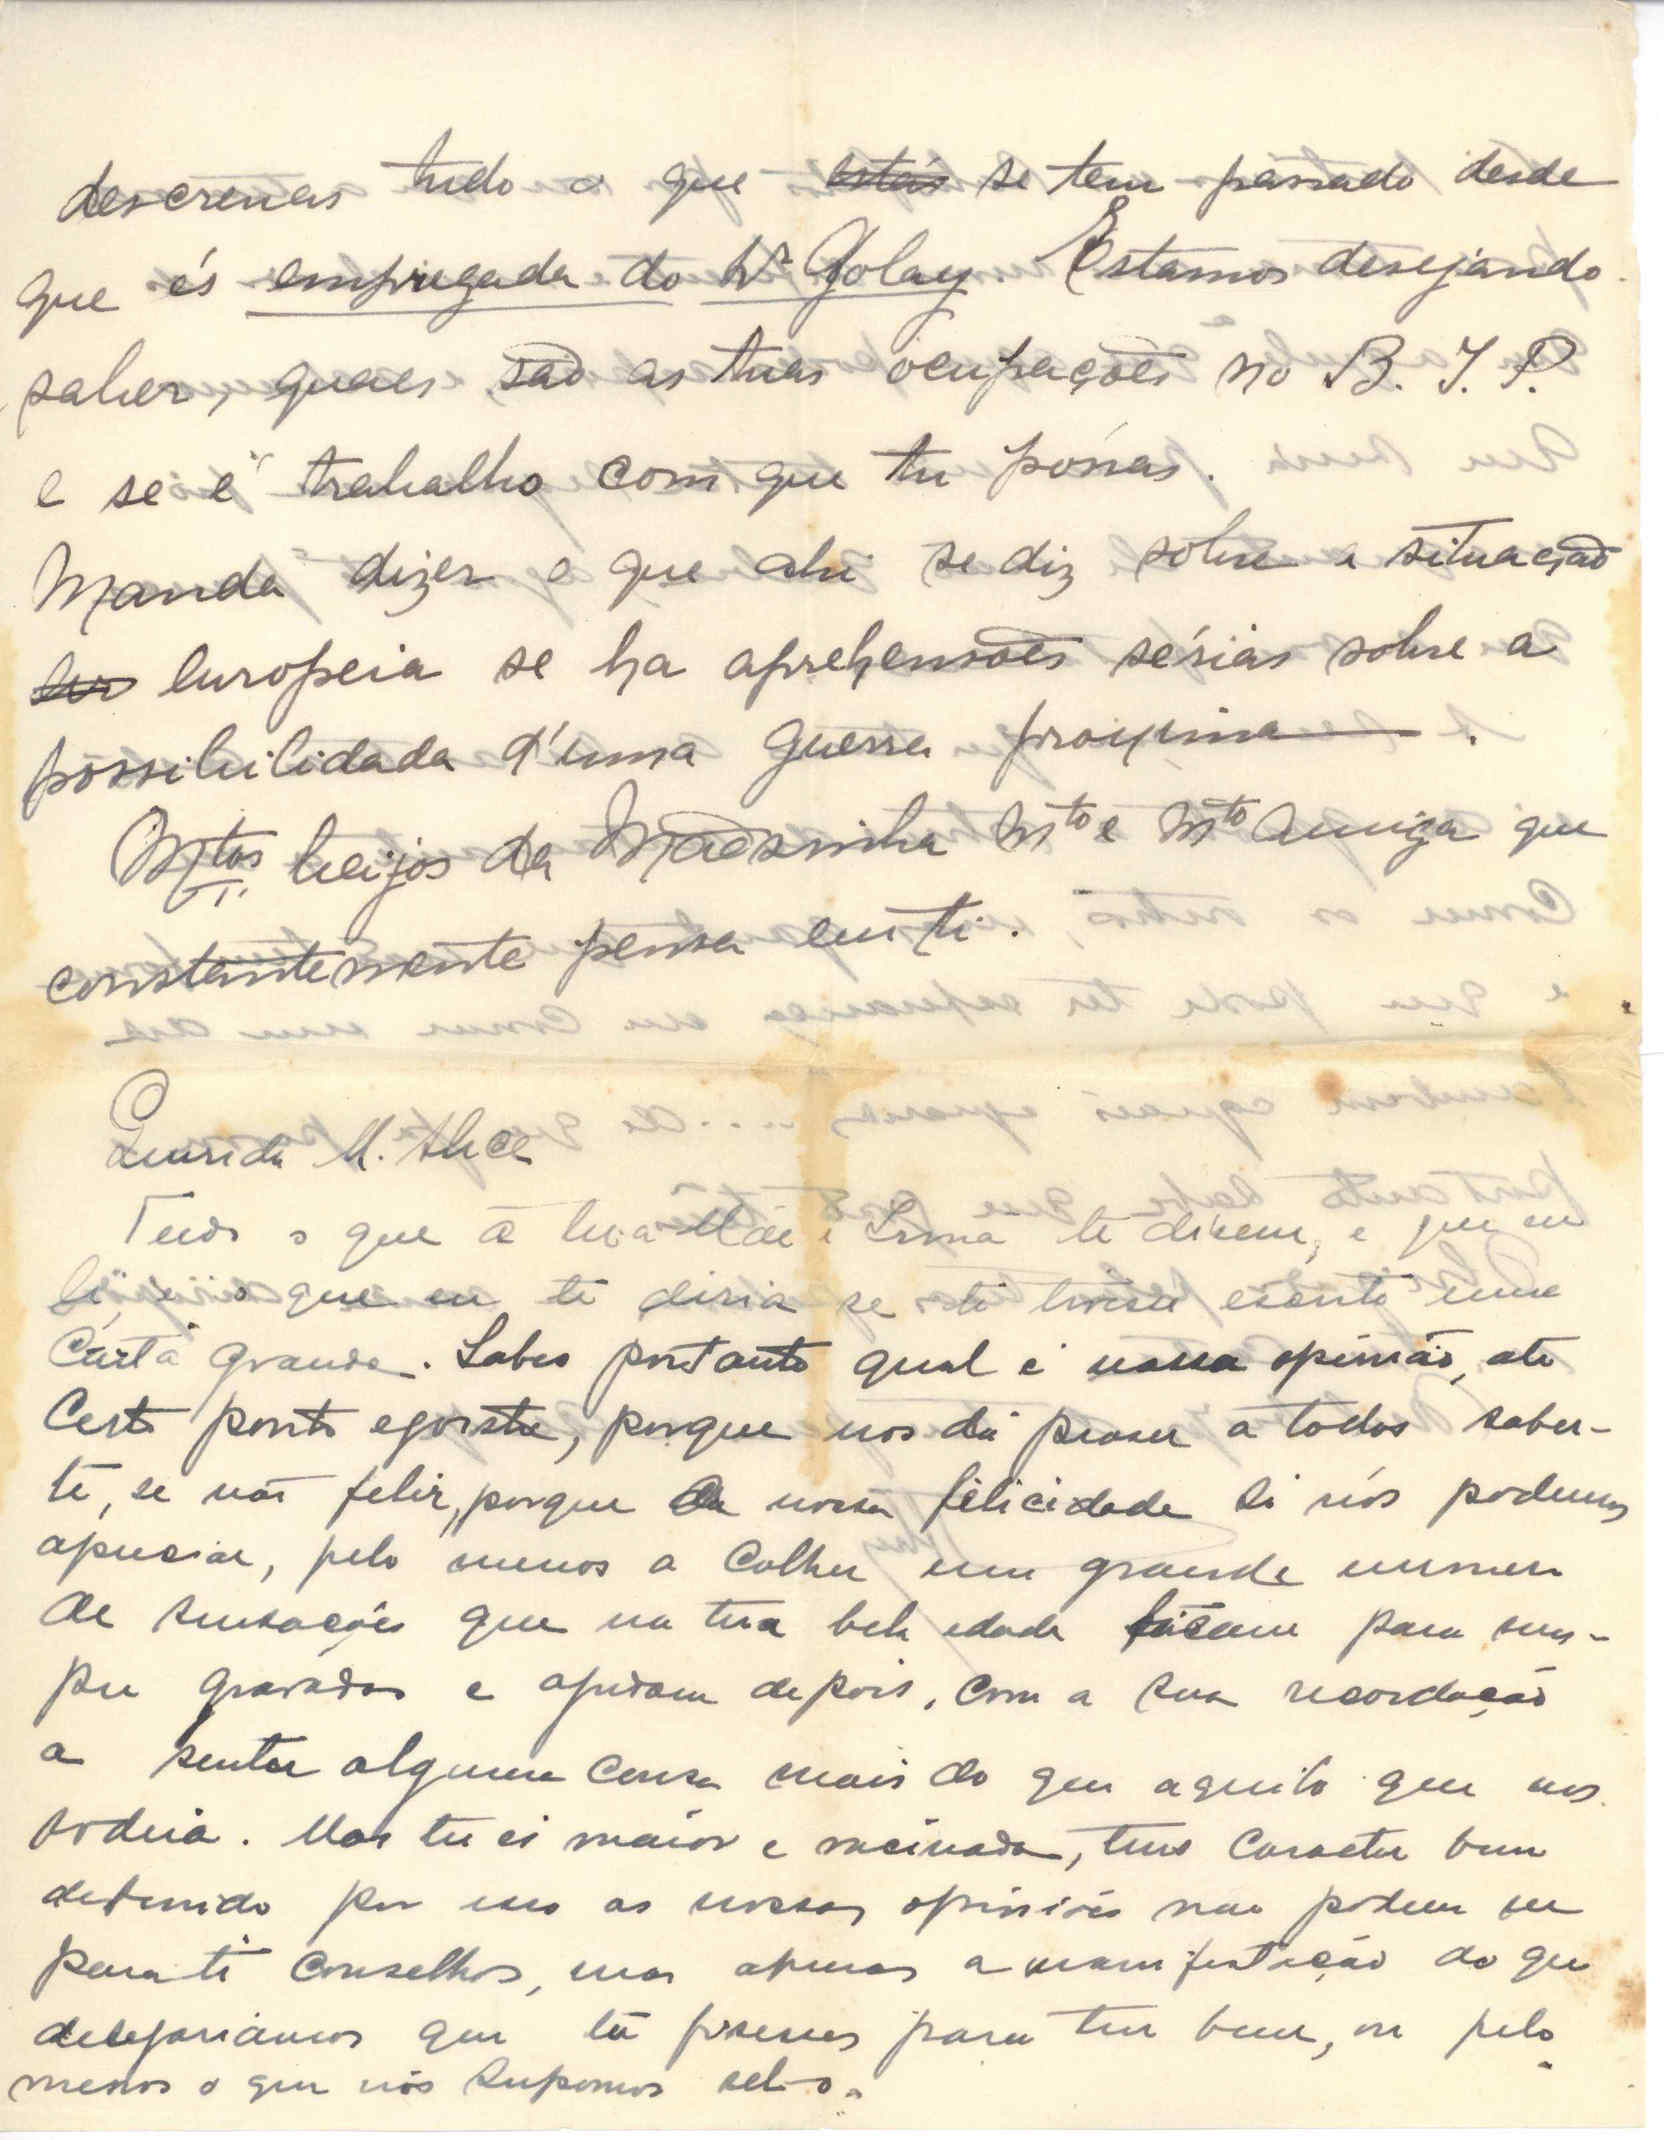 descrevas tudo o que estás se tem passado desde
que és empregada do Golay. Estamos desejando
saber, quaes, são as tuas ocupações no B. I. P.
e se é trabalho com que tu possas.
Manda dizer o que ahi se diz sobre a situação
eur europeia se ha aprehensões sérias sobre a
possibilidada d'uma guerra proxima.
Mtos beijos da Mãesinha Mto e Mto Amiga que
constantemente pensa em ti.
Querida M. Alice
Tudo o que a tua Mãe e Irma te dizem, e que eu
li, é o que eu te diria se te tivesse escrito uma
Carta grande. Sabes portanto qual é nossa opinião, ate
Certo ponto egoista, porque nos dá praser a todos saber-
te, se não feliz, porque da nossa felicidade só nós podemos
apreciar, pelo menos a Colher um grande numero
de sensações que na tua bela edade ficam para sem-
pre gravadas e ajudam depois, com a sua recordação
a sentir alguma Cousa mais do que aquilo que nos
rodeia. Mas tu és maior e vacinada, tens Caracter bem
definido por isso as nossas opiniões não podem ser
para ti Conselhos, mas apenas a manifestação do que
desejariamos que tu fisesses para teu bem, ou pelo
menos o que nós supomos sel-o.